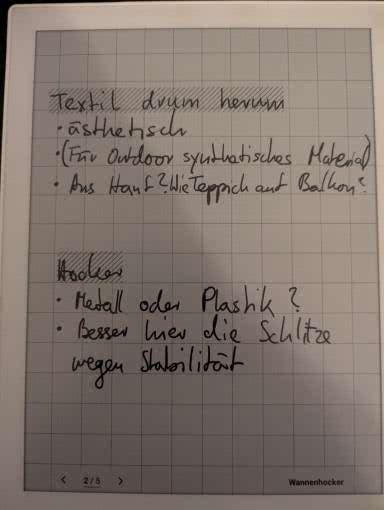 Textil drum herum
• ästhetisch
• (Für Outdoor synthetisches Material)
• Aus Hanf? Wie Teppich auf Balkon?
Hocker
• Metall oder Plastik?
• Besser hier die Schlitze
wegen Stabilität
< 2/5 >
Wannenhocker